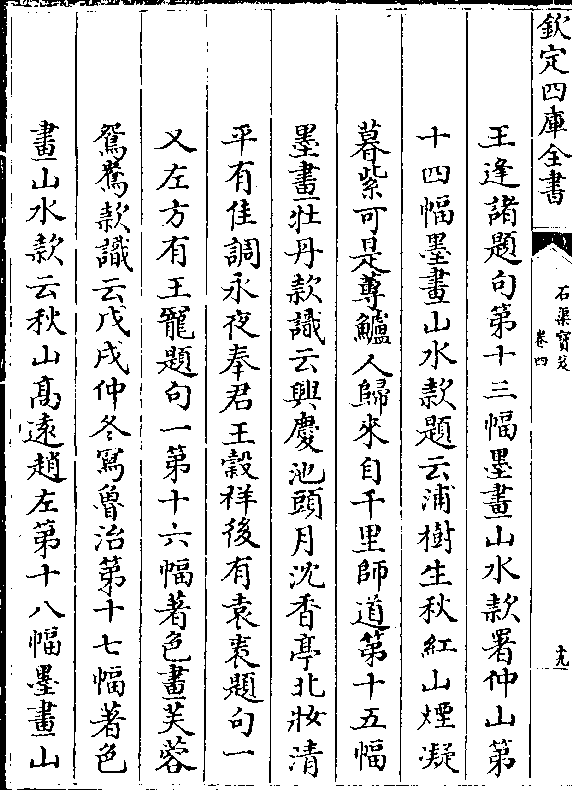 欽定四庫全書
石渠寳笈
卷四
十九
王逢諸題句第十三幅墨畫山水款署仲山第
十四幅墨畫山水款題云浦樹生秋紅山煙凝
暮紫可是蓴鱸人歸來自千里師道第十五幅
墨畫牡丹款識云興慶池頭月沈香亭北妝清
平有佳調永夜奉君王榖祥後有袁褧題句一
又左方有王寵題句一第十六幅著色畫芙蓉
鴛鴦款識云戊戌仲冬寫魯治第十七幅著色
畫山水款云秋山髙遠趙左第十八幅墨畫山